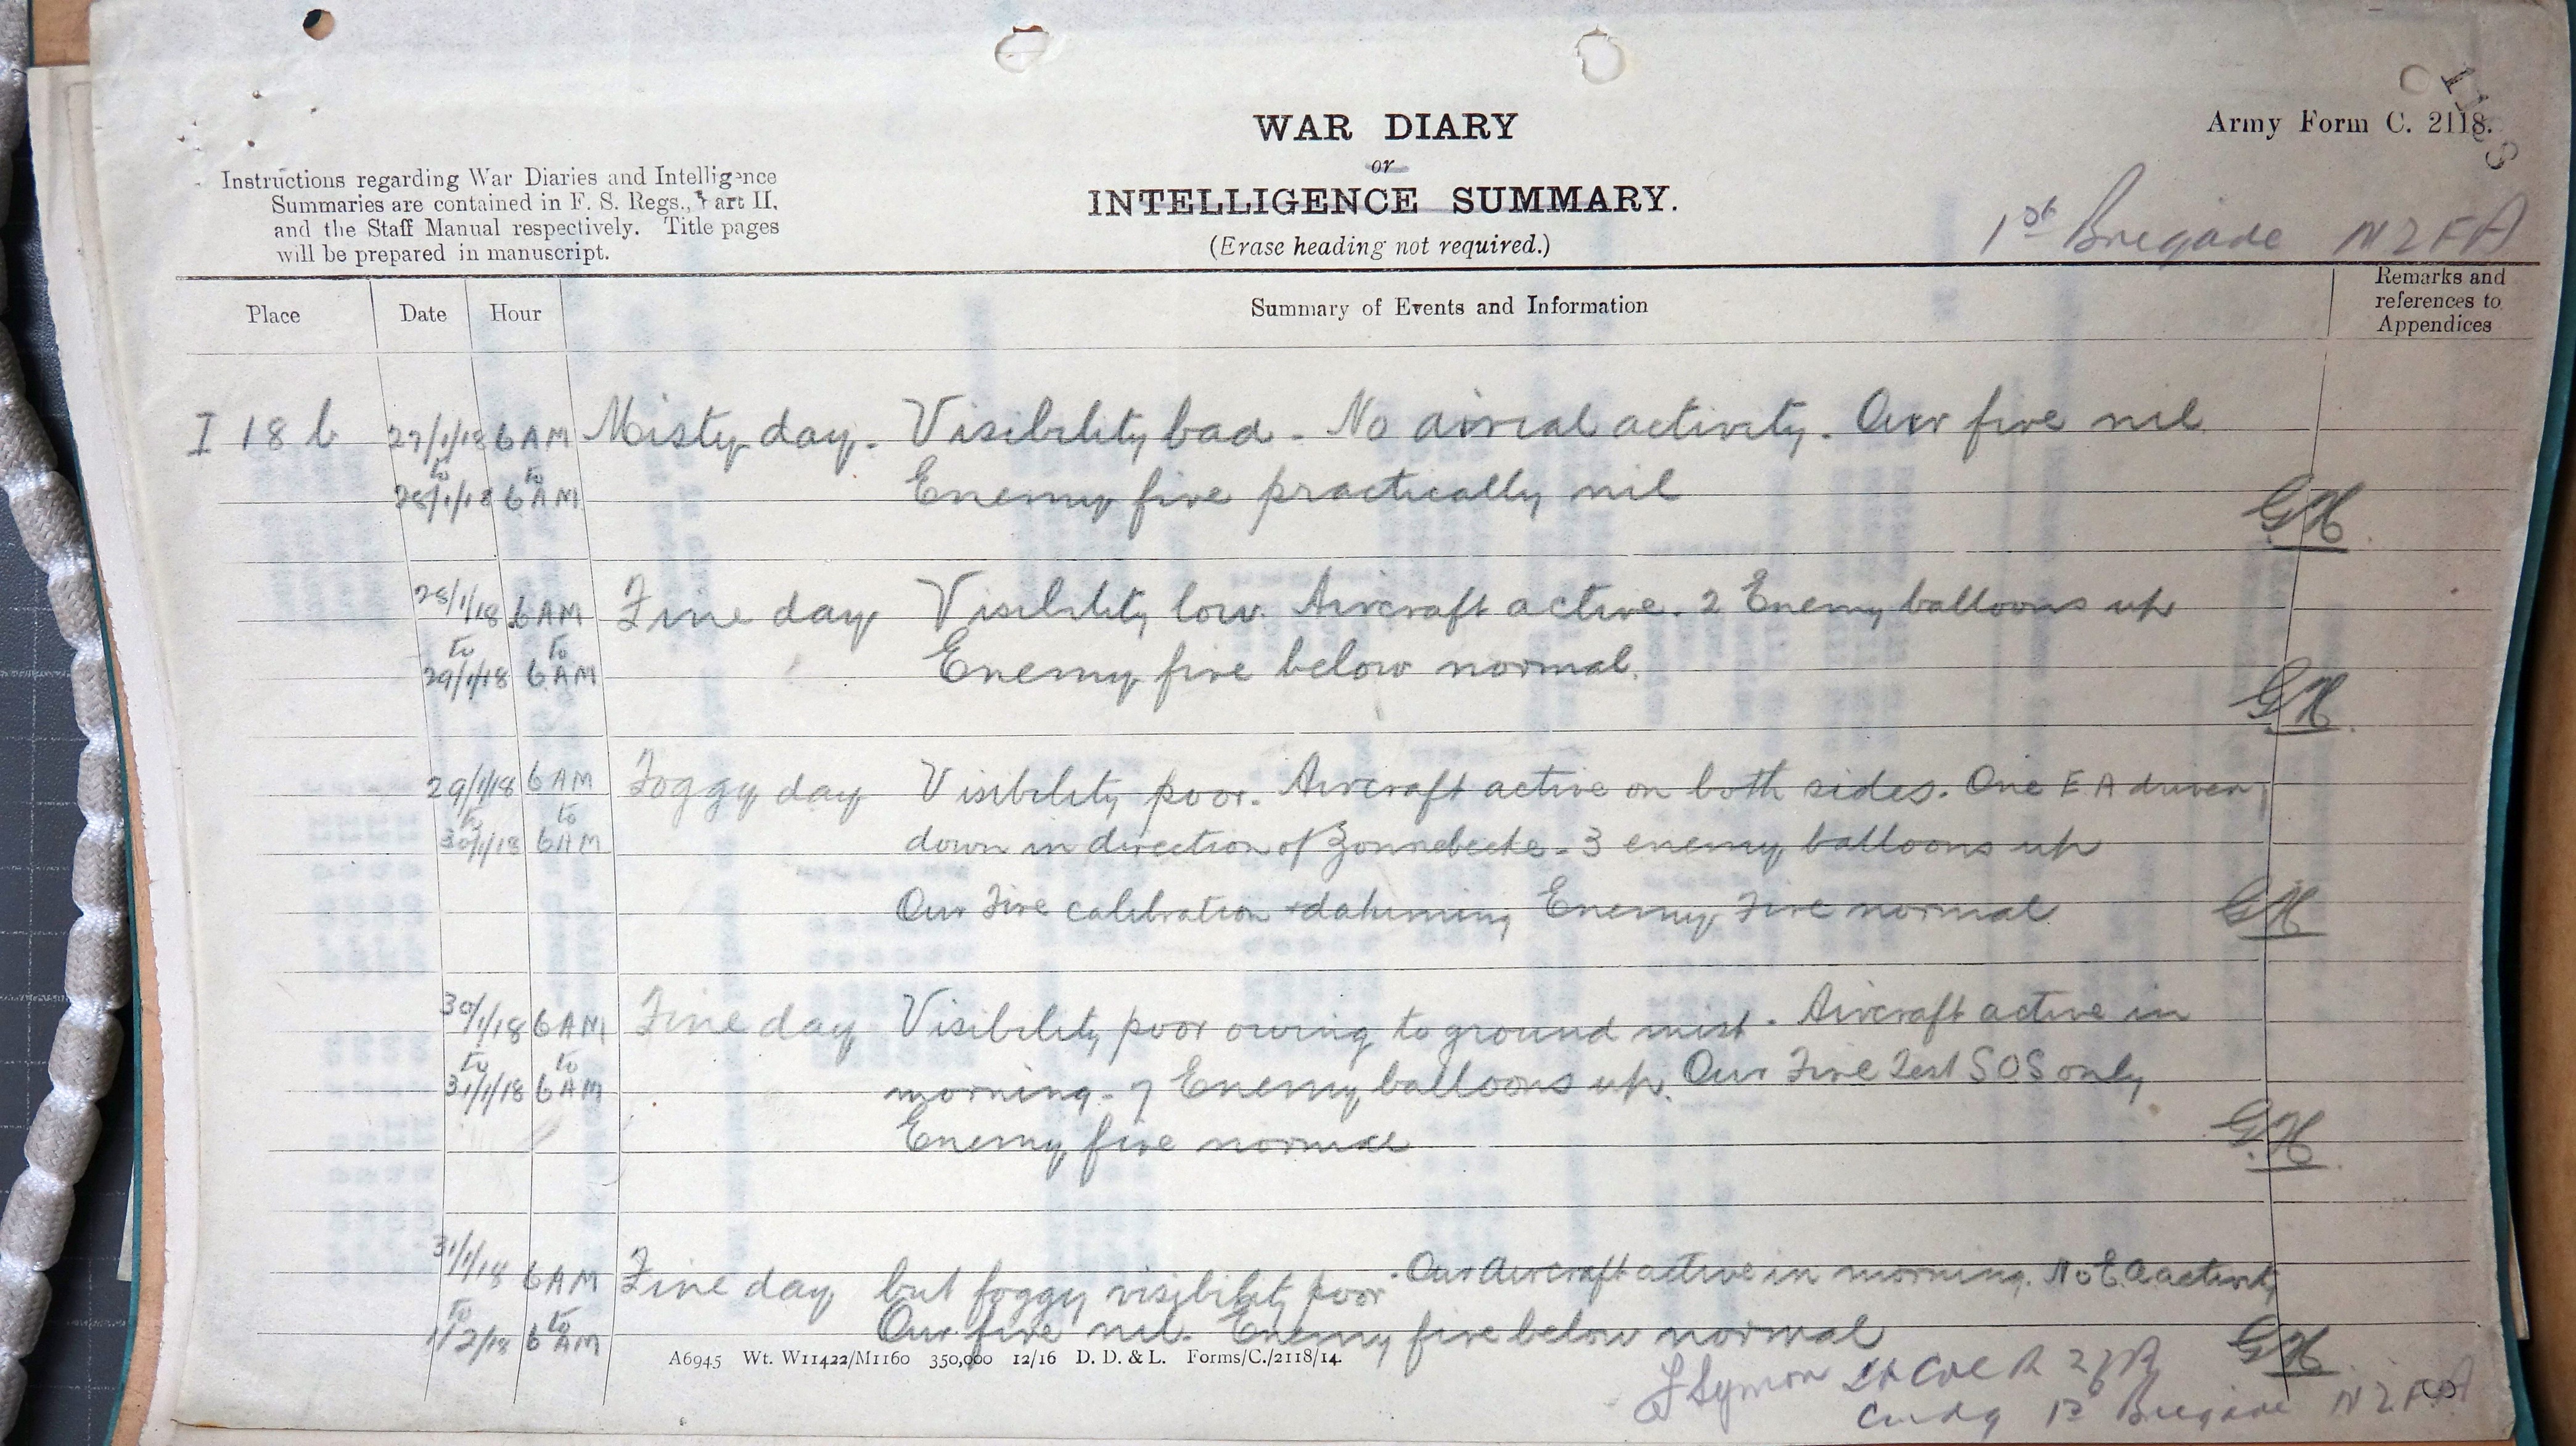 WAR DIARY
or
INTELLIGENCE SUMMARY.
(Erase heading not required.)
Army Form C. 2118.
Instructions regarding War Diaries and Intelligence
Summaries are contained in F. S. Regs., Part II,
and the Staff Manual respectively. Title pages
will be prepared in manuscript.
1st Brigade NZFA
Place Date Hour Summary of Events and Information Remarks and
references to
Appendices
I 18 b 27/1/18 6 AM Misty day. Visibility bad. No airial activity. Our fire nil
to to
28/1/18 6 AM Enemy fire practically nil
GH
28/1/18 6 AM Fine day Visibility low. Aircraft active. 2 Enemy balloons up
to to
29/1/18 6 AM Enemy fire below normal.
GH
29/1/18 6 AM Foggy day Visibility poor. Aircraft active on both sides. One E A driven
to to
30/1/18 6 AM down in direction of Zonnebecke. 3 enemy balloons up
Our Fire calibration Enemy Fire normal GH
30/1/18 6 AM Fine day Visibility poor owing to ground mist. Aircraft active in
to to
31/1/18 6 AM morning. 7 Enemy balloons up. Our Fire Test SOS only
Enemy fire normal GH
31/1/18 6 AM Fine day but foggy visibility poor. Our Aircraft active in morning. No E.A activity
to to
1/2/18 6 AM Our fire nil. Enemy fire below normal
GH
A6945 Wt. W11422/M1160 350,000 12/16 D. D. & L. Forms/C./2118/14.
F Symon Lt Col R
Cmdg 1st Brigade NZFA